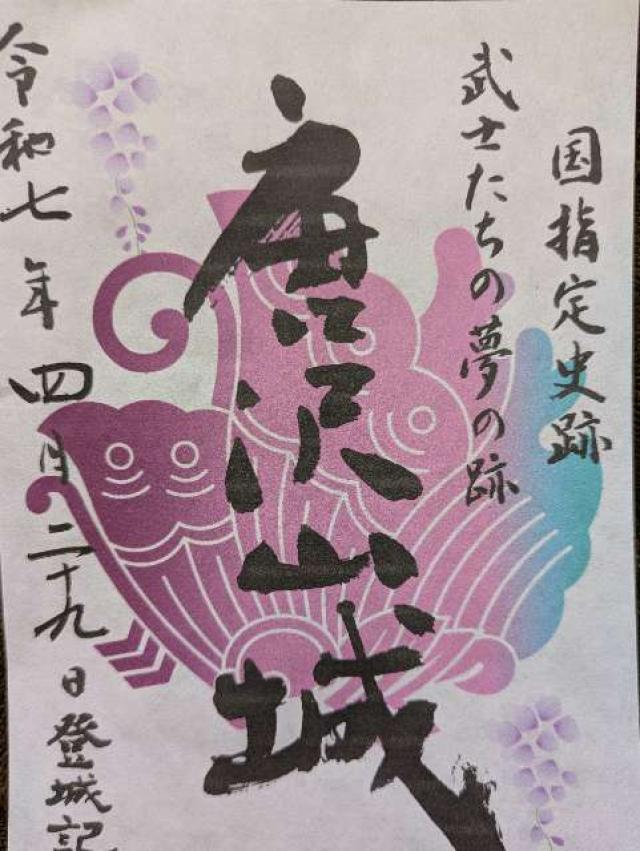 国指定史跡
武士たちの夢の跡
唐沢山城
令和七年四月二十九日登城記